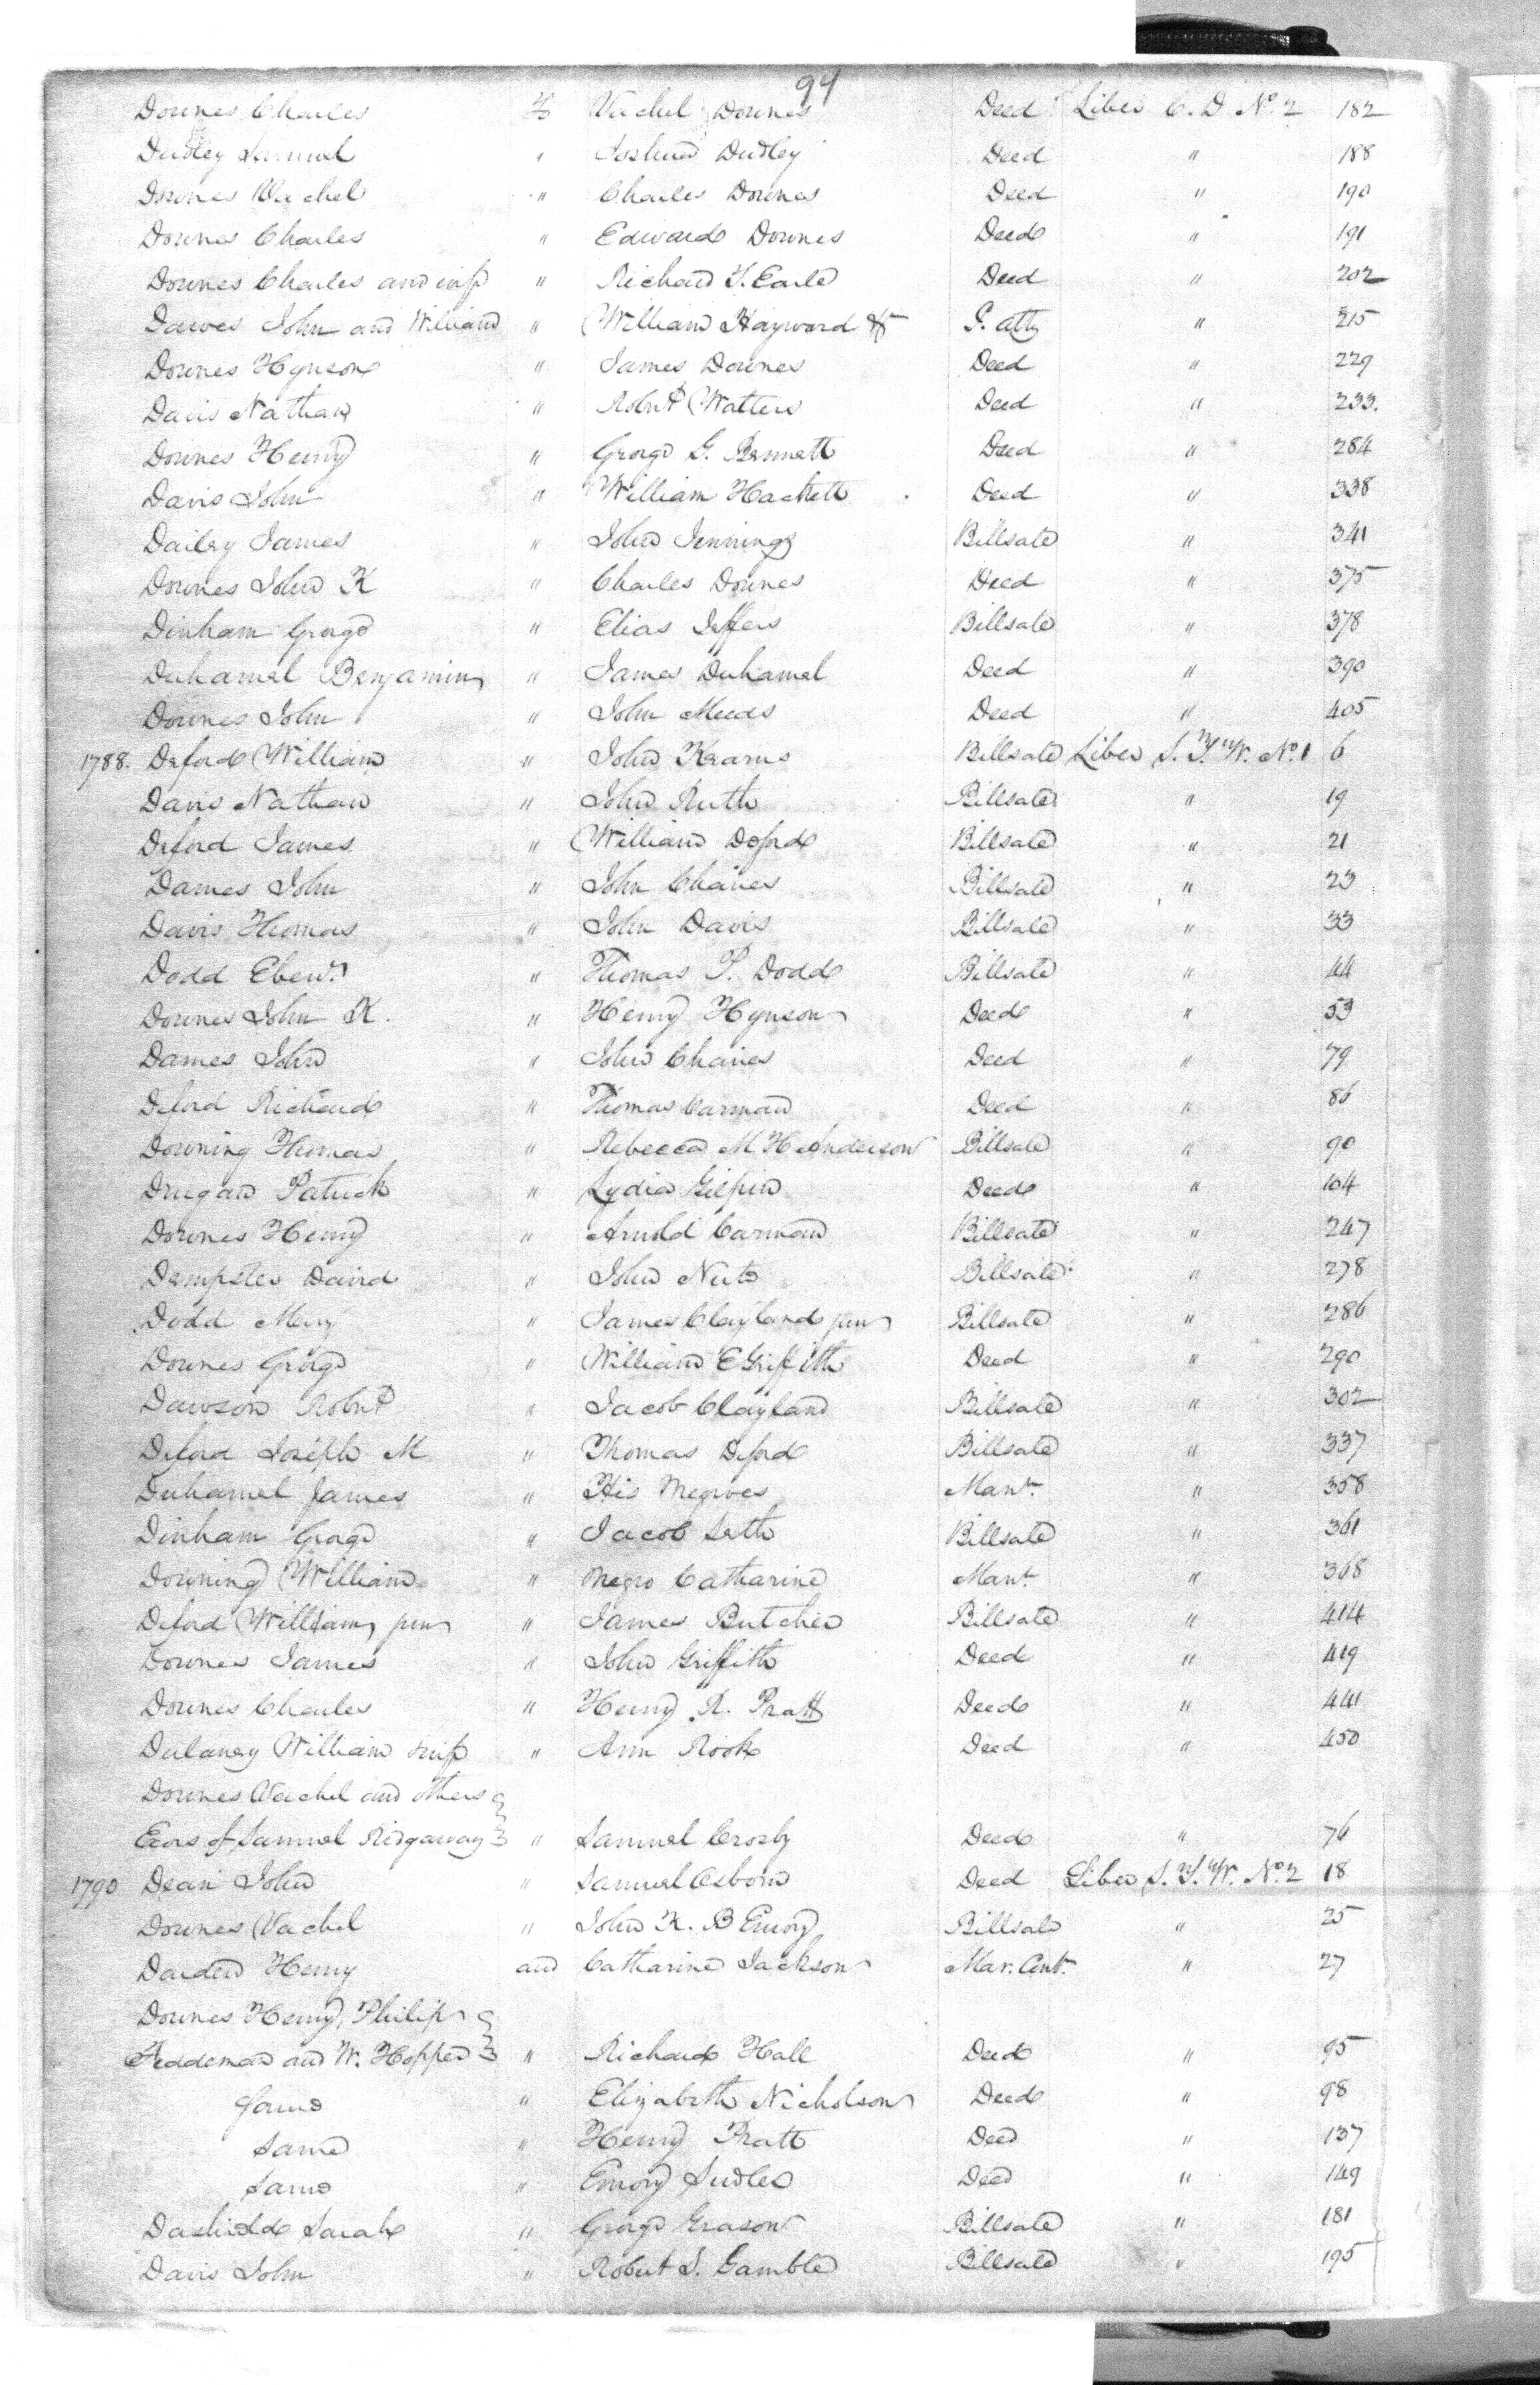 94
Downes Charles to Vachel Downes Deed Liber C. D. No 2 182
Dudley Samuel " Joshua Dudley Deed " 188
Downes Vachel " Charles Downes Deed " 190
Downes Charles " Edward Downes Deed " 191
Downes Charles and wife " Richard T. Earle Deed " 202
Dawes John and William " William Hayward P. Atty " 215
Downes Hynson " James Downes Deed " 229
Davis Nathan " Robert Walters Deed " 233.
Downes Henry " George G. Bennett Deed " 284
Davis John " William Hackett Deed " 338
Dailey James " John Jennings Billsale " 341
Downes John K " Charles Downes Deed " 375
Dinham George " Elias Jeffers Billsale " 378
Duhamel Benjamin " James Duhamel Deed " 390
Downes John " John Meeds Deed " 405
1788. Deford William " John Kearns Billsale Liber S. T. W. No. 1 6
Davis Nathan " John Ruth Billsale " 19
Deford James " William Deford Billsale " 21
Dames John " John Chaires Billsale " 23
Davis Thomas " John Davis Billsale " 33
Dodd Eben. " Thomas P. Dodd Billsale " 44
Downes John K. " Henry Hynson Deed " 53
Dames John " John Chaires Deed " 79
Deford Richard " Thomas Carman Deed " 86
Downing Thomas " Rebecca M H Anderson Billsale " 90
Drugan Patrick " Lydia Gilpin Deed " 104
Downes Henry " Arnold Carman Billsale " 247
Dempster David " John Nuts Billsale " 278
Dodd Mary " James Clayland jun Billsale " 286
Downes George " William E Griffith Deed " 290
Dawson Robert " Jacob Clayland Billsale " 302
Deford Joseph M " Thomas Deford Billsale " 337
Duhamel James " His Negroes Mant. " 358
Dinham George " Jacob Seth Billsale " 361
Downing William " Negro Catharine Mant. " 368
Deford William jun " James Butcher Billsale " 414
Downes James " John Griffith Deed " 419
Downes Charles " Henry R. Pratt Deed " 441
Dulaney William " Ann Rook Deed " 450
Downes Vachel and others
Exors of Samuel Ridgaway " Samuel Crosby Deed " 76
1790 Dean John " Samuel Osborn Deed Liber S. T. W. No. 2 18
Downes Vachel " John K. B Emory Billsale " 25
Darden Henry and Catharine Jackson Mar. Cont. " 27
Downes Henry, Philip
Feddeman and W. Hopper " Richard Hall Deed " 95
Same " Elizabeth Nicholson Deed " 98
Same " Henry Pratt Deed " 137
Same " Emory Sudler Deed " 149
Dashield Sarah " George Grason Billsale " 181
Davis John " Robert S. Gamble Billsale " 195